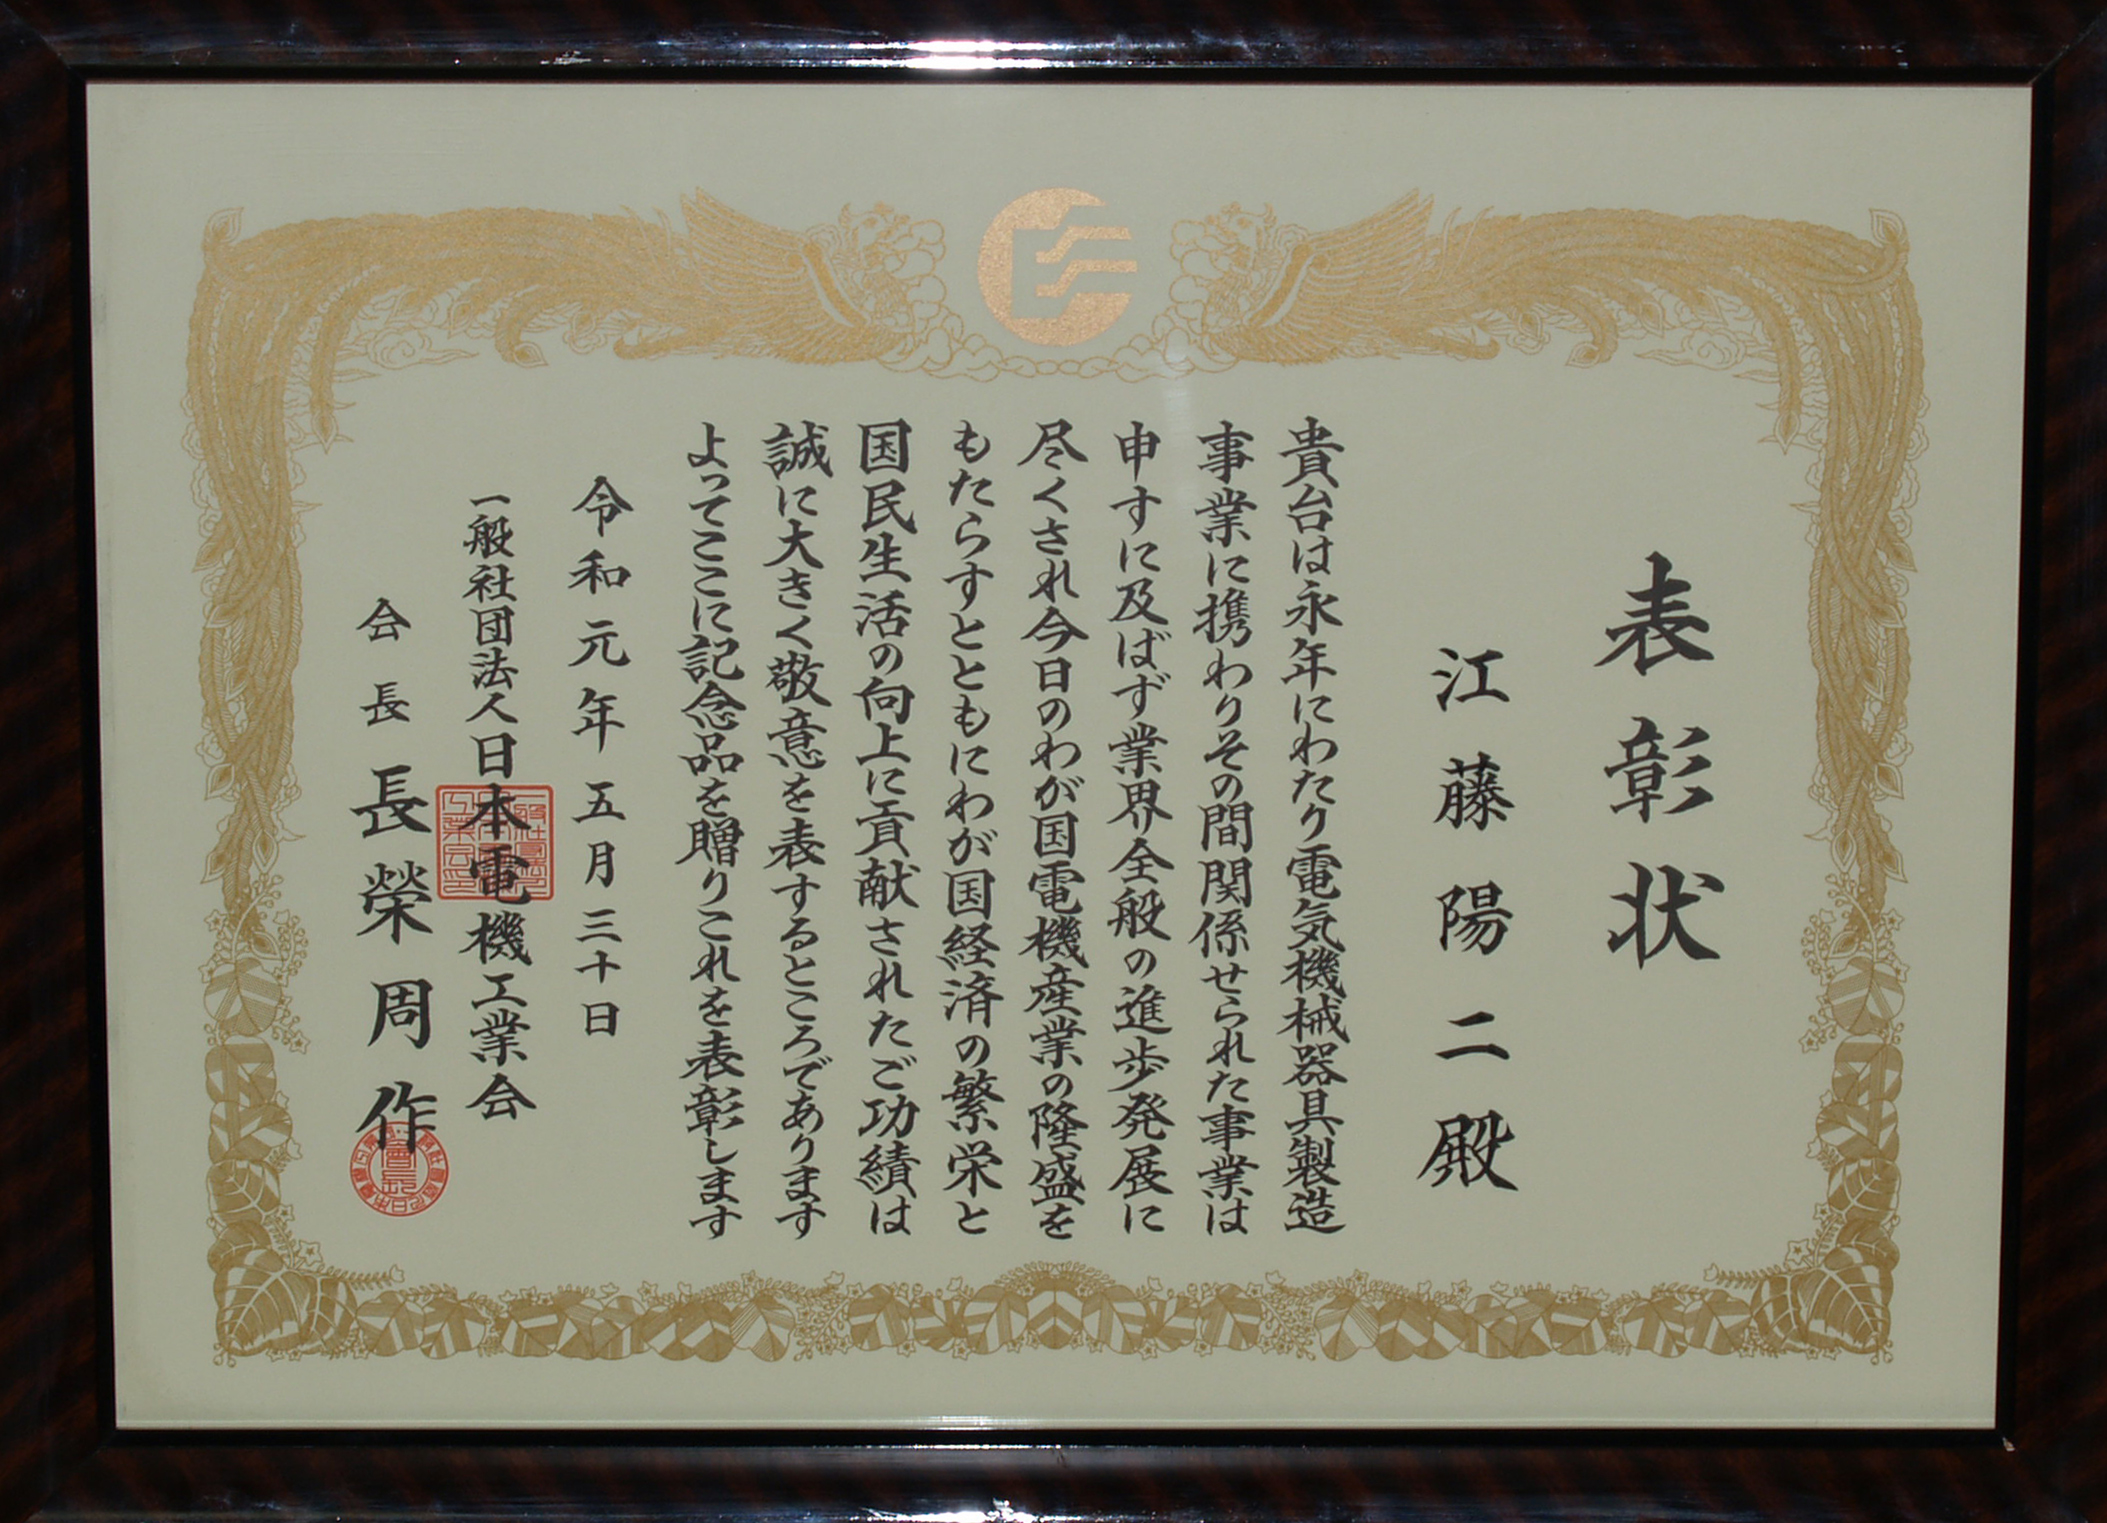 表彰状
江藤陽二殿
貴台は永年にわたり電気機械器具製造
事業に携わりその間関係せられた事業は
申すに及ばず業界全般の進歩発展に
尽くされ今日のわが国電機産業の隆盛を
もたらすとともにわが国経済の繁栄と
国民生活の向上に貢献されたご功績は
誠に大きく敬意を表するところであります
よってここに記念品を贈りこれを表彰します
令和元年五月三十日
一般社団法人日本電機工業会
会長 長榮周作